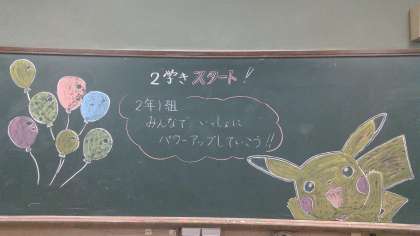 2学きスタート!
2年1組
みんなで、いっしょに
パワーアップしていこう!!